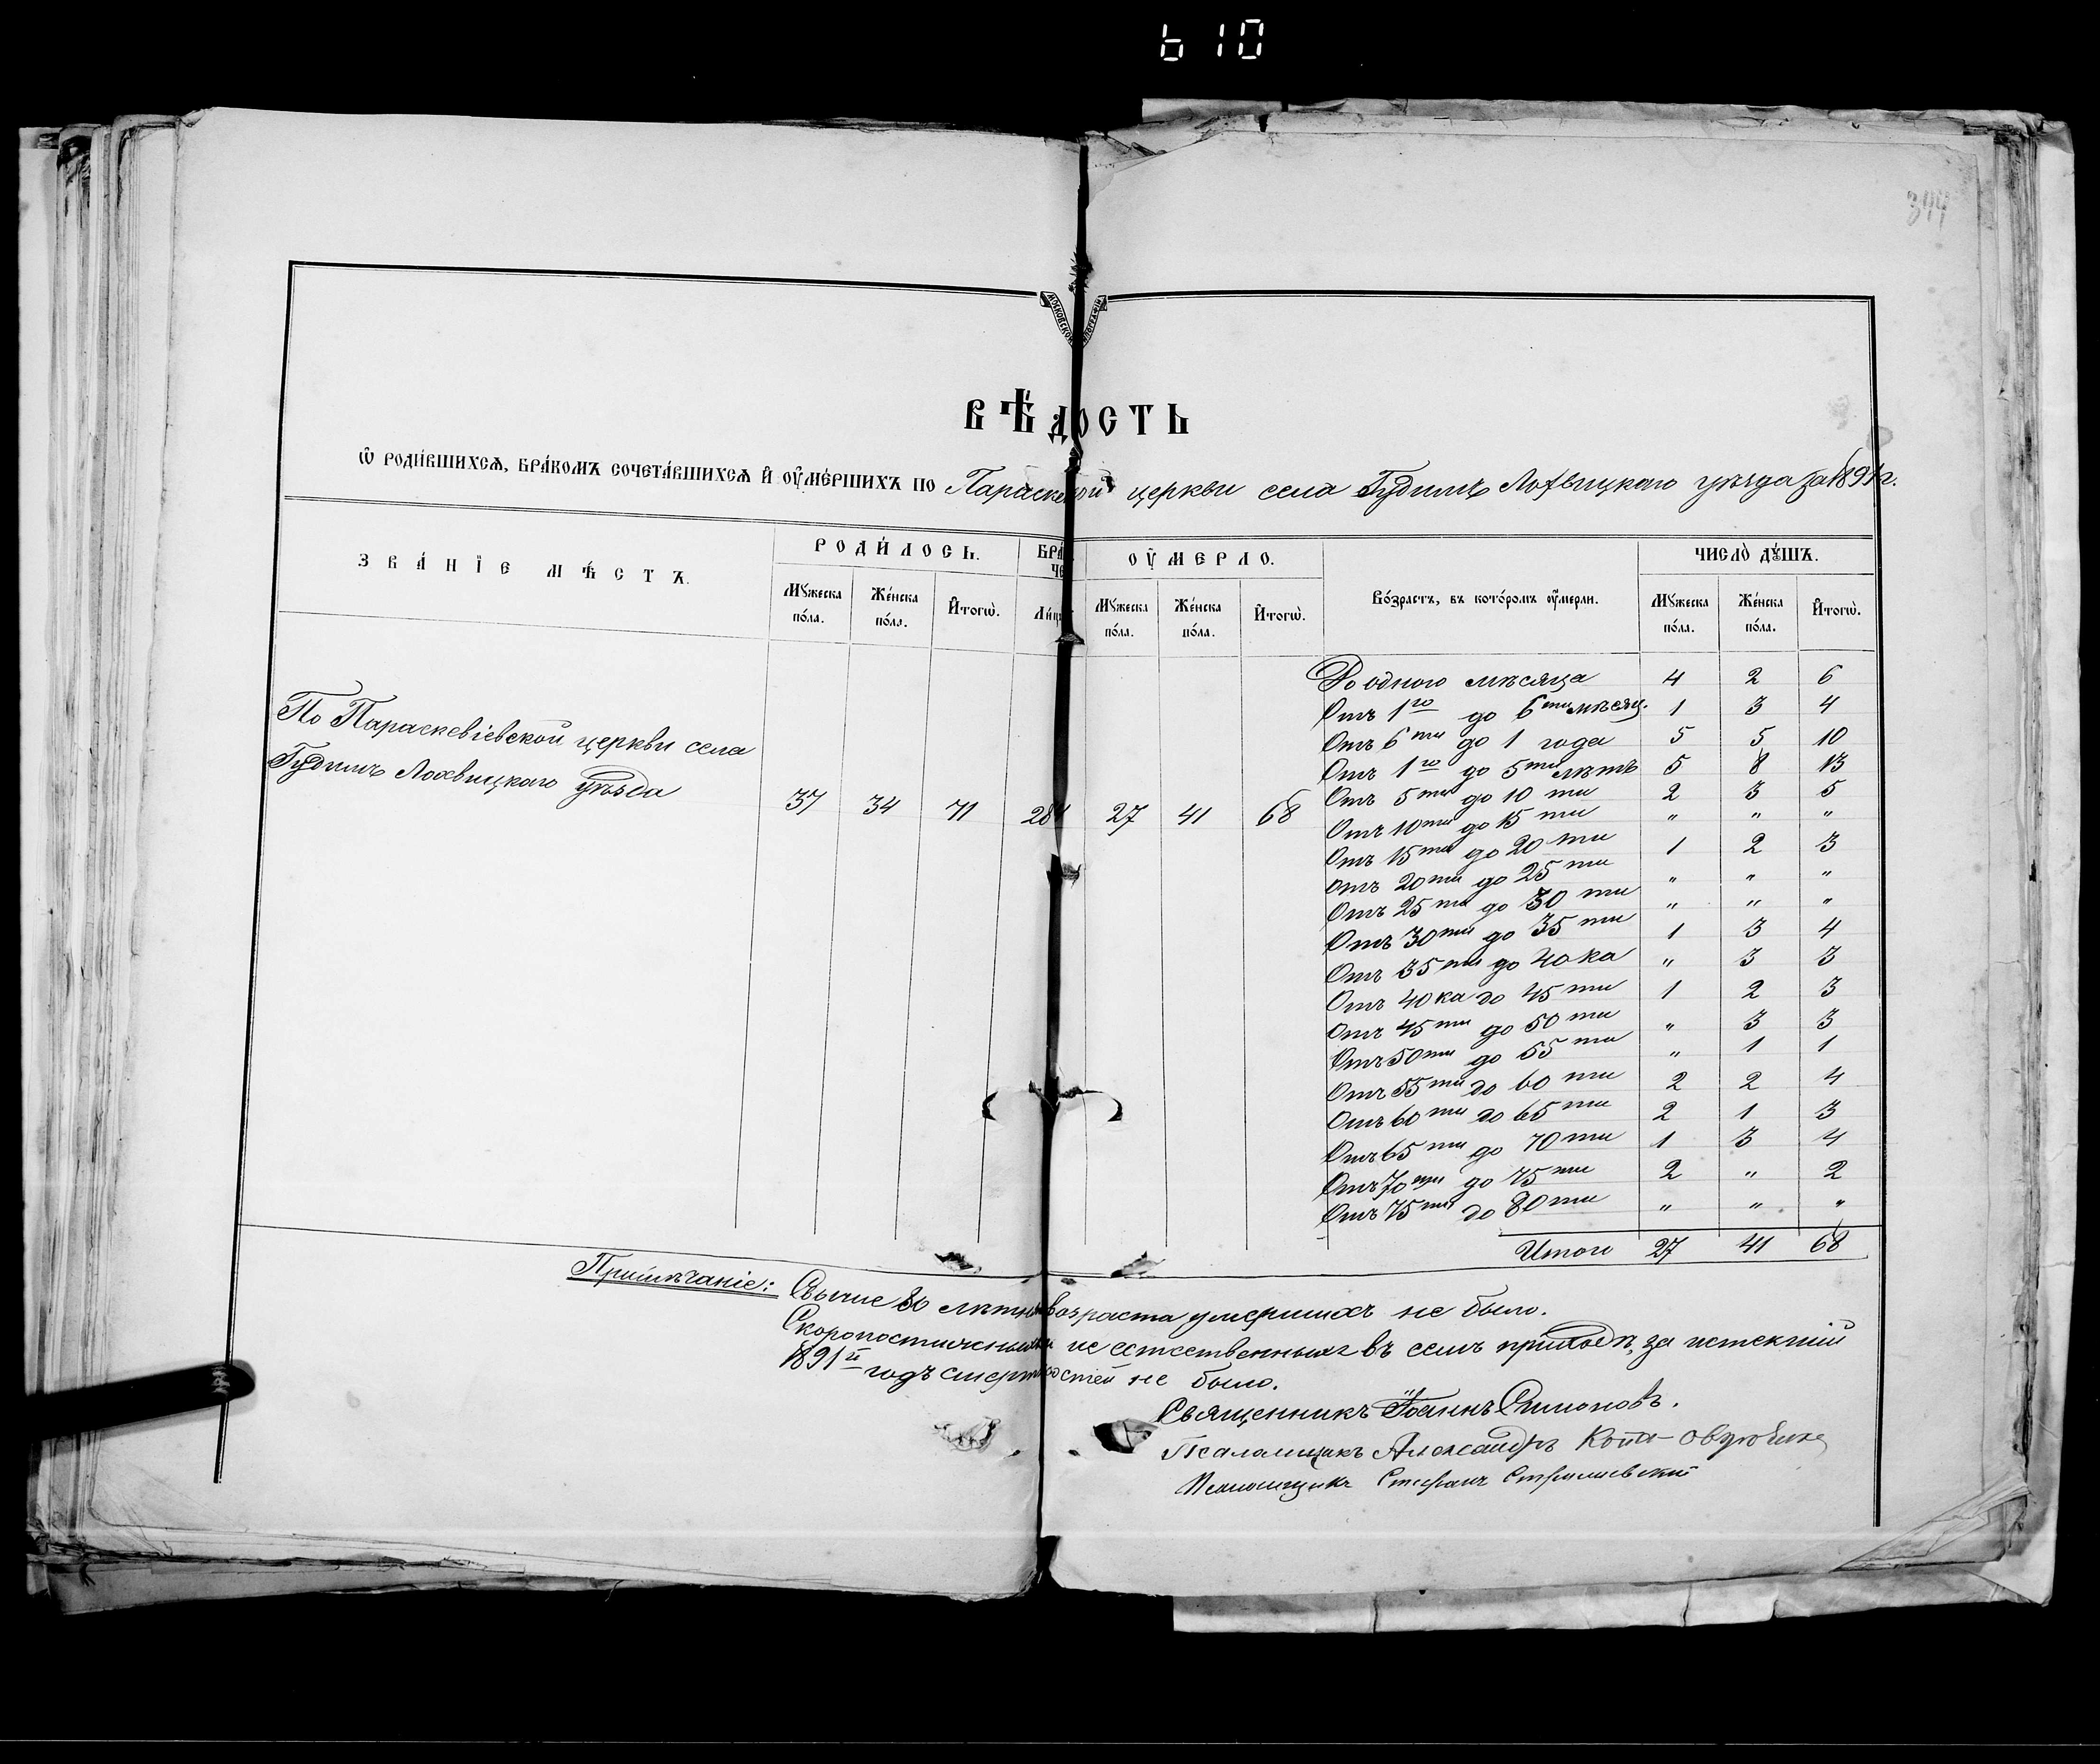 610
344
МОСКОВСКОЙ
ВѢДОСТЬ
Ѡ РОДИ́ВШИХСѦ, БРА́КОМЪ СОЧЕТА́ВШИХСѦ И҆ ОУ҆МЕ́РШИХЪ ПО Параскев церкви села Гудимъ Лохвицкаго уѣзда за 1891 г.
ЗВА́НІЕ МѢ́СТЪ. РОДИ́ЛОСЬ. БРА ЧЕ ОУ҆МЕРЛО. Во́зрастъ, въ кото́ромъ оу҆́мерли. ЧИСЛО̀ ДꙊ́ШЪ.
Мꙋ́жеска по́ла. Же́нска по́ла. И҆тогѡ̀. Ли́цъ Мꙋ́жеска по́ла. Же́нска по́ла. И҆тогѡ̀. Мꙋ́жеска по́ла. Же́нска по́ла. И҆тогѡ̀.
По Параскевіевской церкви села
Гудимъ Лохвицкаго уѣзда
37 34 71 28 27 41 68
До одного мѣсяца 4 2 6
Отъ 1го до 6ти мѣсяц. 1 3 4
Отъ 6ти до 1 года 5 5 10
Отъ 1го до 5ти лѣтъ 5 8 13
Отъ 5ти до 10 ти 2 3 5
Отъ 10ти до 15 ти " " "
Отъ 15ти до 20 ти 1 2 3
Отъ 20ти до 25 ти " " "
Отъ 25ти до 30 ти " " "
Отъ 30ти до 35 ти 1 3 4
Отъ 35ти до 40 ка " 3 3
Отъ 40 ка до 45 ти 1 2 3
Отъ 45 ти до 50 ти " 3 3
Отъ 50ти до 55 ти " 1 1
Отъ 55 ти до 60 ти 2 2 4
Отъ 60 ти до 65 ти 2 1 3
Отъ 65 ти до 70 ти 1 3 4
Отъ 70 ти до 75 ти 2 " 2
Отъ 75 ти до 80 ти " " "
Итого 27 41 68
Примѣчаніе: Свыше 80 лѣтн возраста умершихъ не было.
Скоропостижн не естественныхъ въ семъ приходѣ, за истекшій
1891й годъ смертностей не было.
Священникъ Іоаннъ Симоновъ.
Псаломщикъ Александръ
Псаломщикъ Стефанъ